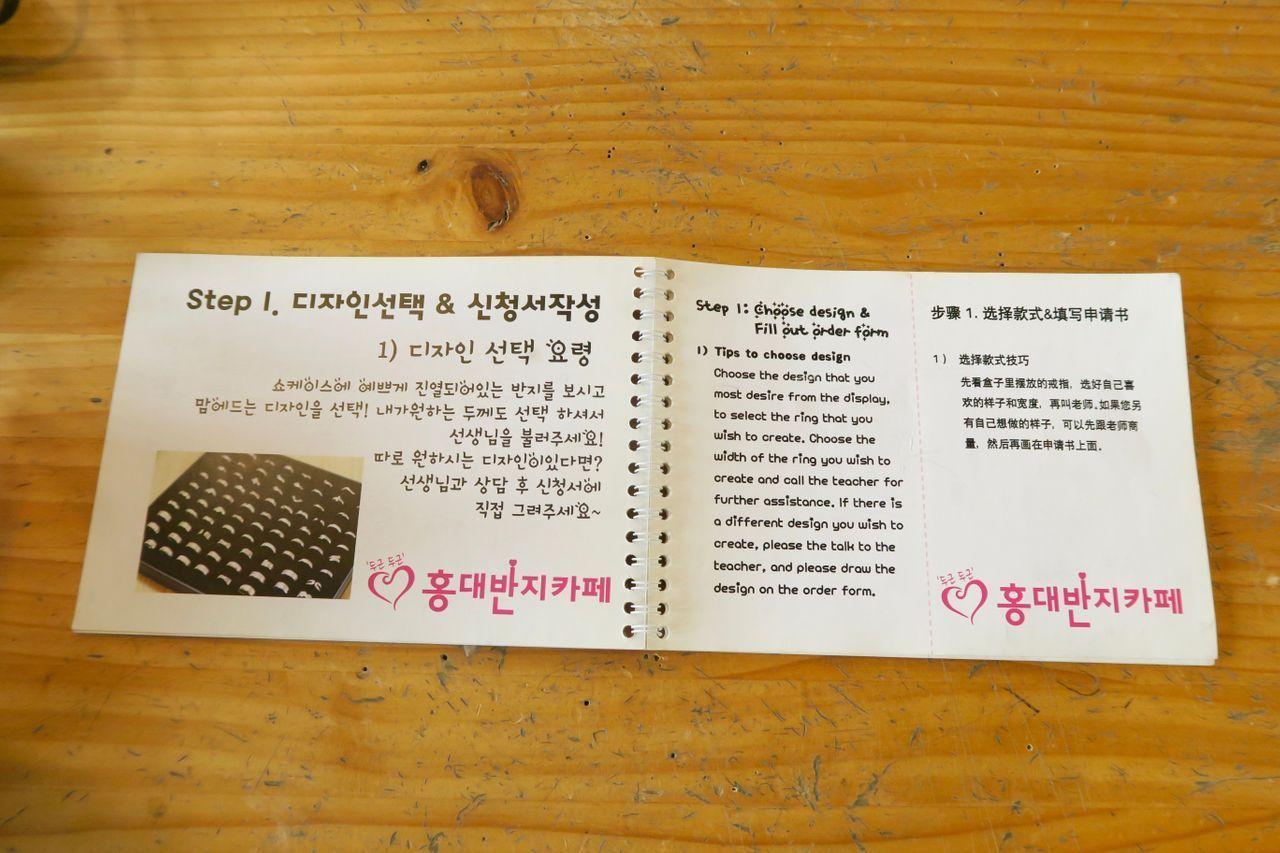 Step 1. 디자인선택 & 신청서작성
1) 디자인 선택 요령
쇼케이스에 예쁘게 진열되어있는 반지를 보시고
맘에드는 디자인을 선택! 내가원하는 두께도 선택 하셔서
선생님을 불러주세요!
따로 원하시는 디자인이있다면?
선생님과 상담 후 신청서에
직접 그려주세요~
'두근 두근'
홍대반지카페
Step 1: Choose design &
Fill out order form
1) Tips to choose design
Choose the design that you
most desire from the display,
to select the ring that you
wish to create. Choose the
width of the ring you wish to
create and call the teacher for
further assistance. If there is
a different design you wish to
create, please the talk to the
teacher, and please draw the
design on the order form.
步骤 1. 选择款式&填写申请书
1) 选择款式技巧
先看盒子里摆放的戒指，选好自己喜
欢的样子和宽度，再叫老师。如果您另
有自己想做的样子，可以先跟老师商
量，然后再画在申请书上面。
'두근 두근'
홍대반지카페